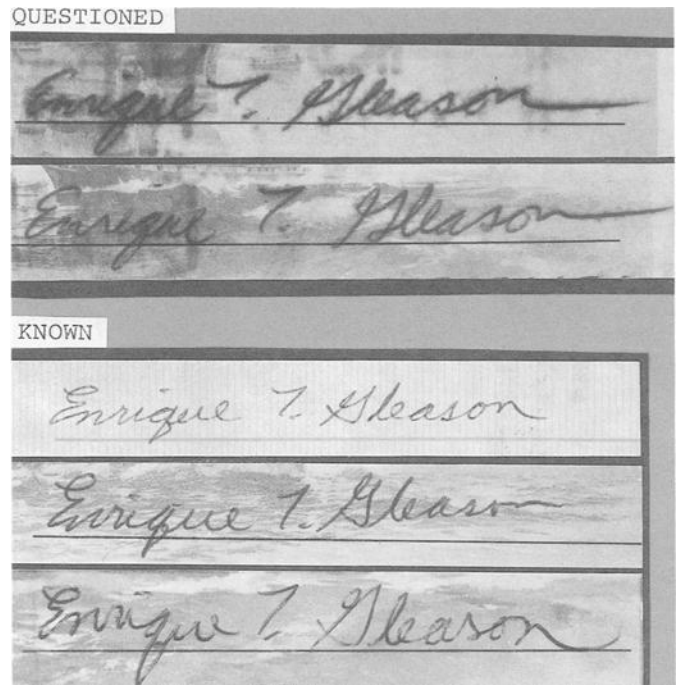 QUESTIONED
Enrique T. Gleason
Enrique T. Gleason
KNOWN
Enrique T. Gleason
Enrique T. Gleason
Enrique T. Gleason